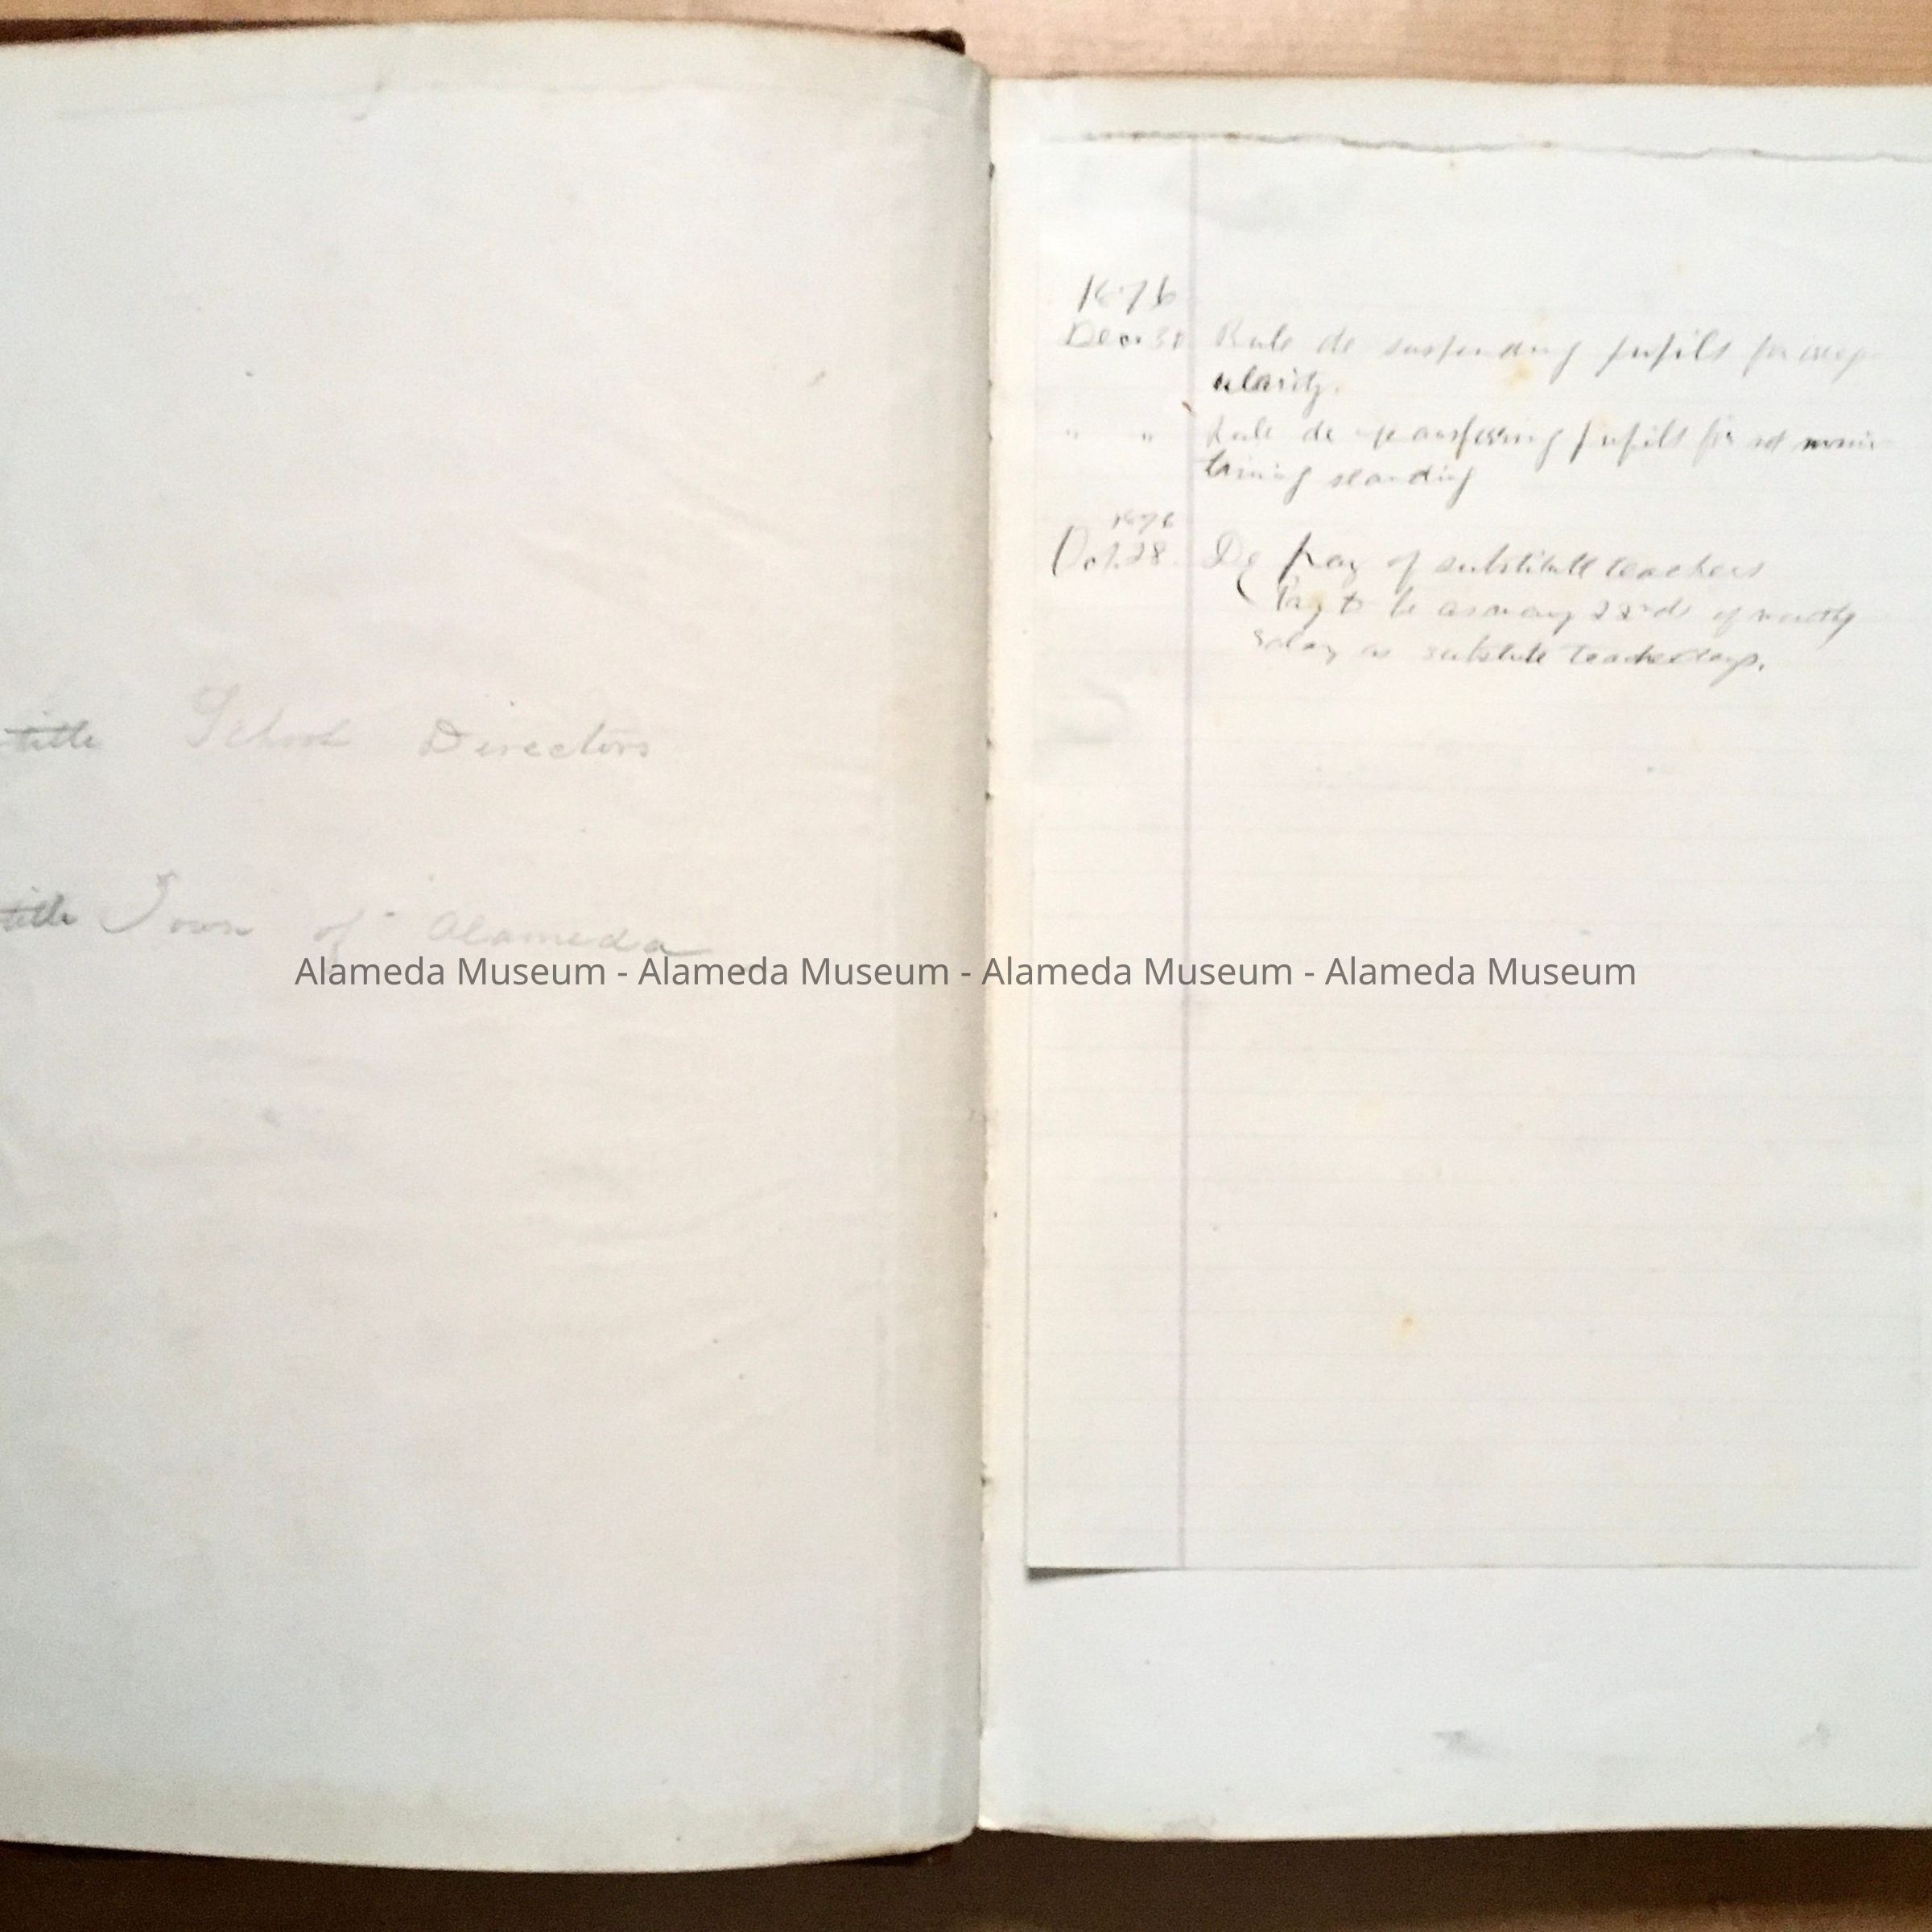 title School Directors
title Town of Alameda
Alameda Museum - Alameda Museum - Alameda Museum - Alameda Museum
1876
Dec. 30 Rule de suspending pupils for irreg
ularity.
" " Rule de transferring pupils for not main
taining standing
1876
Oct. 28. De pay of substitute teachers
Pay to be as many 22nds of monthly
salary as substitute teaches days.